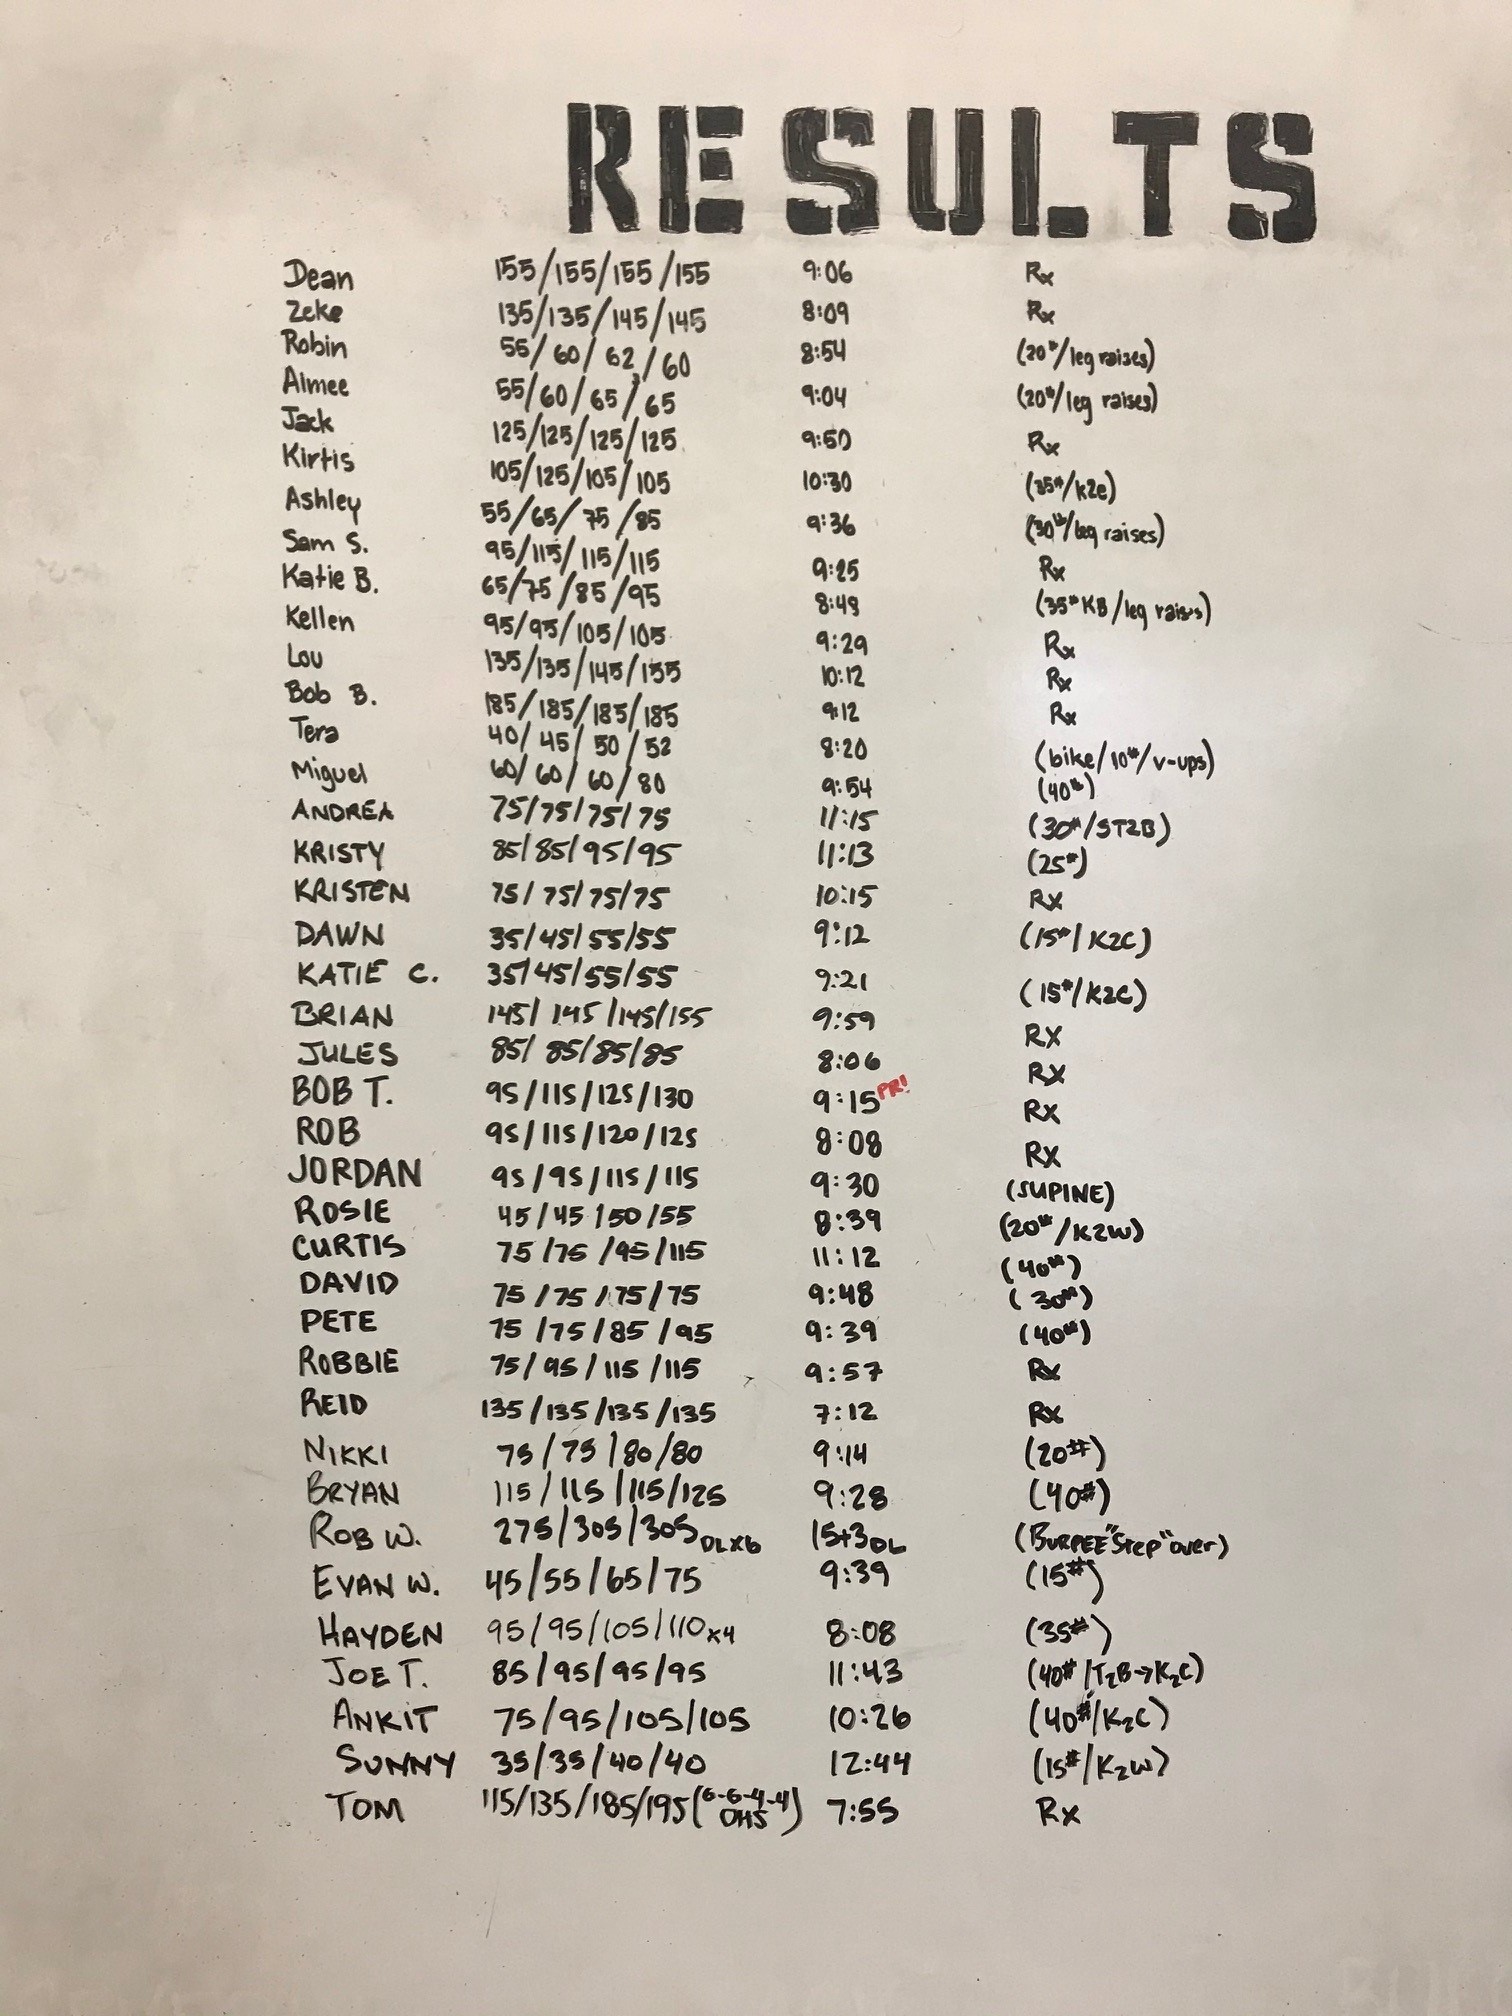 RESULTS
Dean 155/155/155/155 9:06 Rx
Zeke 135/135/145/145 8:09 Rx
Robin 55/60/62/60 8:54 (20#/leg raises)
Aimee 55/60/65/65 9:04 (20#/leg raises)
Jack 125/125/125/125 9:50 Rx
Kirtis 105/125/105/105 10:30 (35#/k2e)
Ashley 55/65/75/85 9:36 (30#/leg raises)
Sam S. 95/115/115/115 9:25 Rx
Katie B. 65/75/85/95 (35# KB/leg raises)
Kellen 95/95/105/105 9:29 Rx
Lou 135/135/145/155 10:12 Rx
Bob B. 185/185/185/185 9:12 Rx
Tera 40/45/50/52 8:20 (bike/10#/v-ups)
Miguel 60/60/60/80 9:54 (40#)
ANDREA 75/75/75/75 11:15 (30#/ST2B)
KRISTY 85/85/95/95 11:13 (25#)
KRISTEN 75/75/75/75 10:15 Rx
DAWN 35/45/55/55 9:12 (15#/K2C)
KATIE C. 35/45/55/55 9:21 (15#/K2C)
BRIAN 145/145/145/155 9:59 RX
JULES 85/85/85/85 8:06 RX
BOB T. 95/115/125/130 9:15 PR! RX
ROB 95/115/120/125 8:08 RX
JORDAN 95/95/115/115 9:30 (SUPINE)
ROSIE 45/45/50/55 8:39 (20#/K2W)
CURTIS 75/75/95/115 11:12 (40#)
DAVID 75/75/75/75 9:48 (30#)
PETE 75/75/85/95 9:39 (40#)
ROBBIE 75/95/115/115 9:57 Rx
REID 135/135/135/135 7:12 Rx
NIKKI 75/75/80/80 9:14 (20#)
BRYAN 115/115/115/125 9:28 (40#)
ROB W. 275/305/305 DLX6 15+3 DL (BURPEE "Step" over)
EVAN W. 45/55/65/75 9:39 (15#)
HAYDEN 95/95/105/110 x4 8:08 (35#)
JOE T. 85/95/95/95 11:43 (40#/T2B→K2C)
ANKIT 75/95/105/105 10:26 (40#/K2C)
SUNNY 35/35/40/40 12:44 (15#/K2W)
TOM 115/135/185/195 (6-6-4-4 OHS) 7:55 Rx